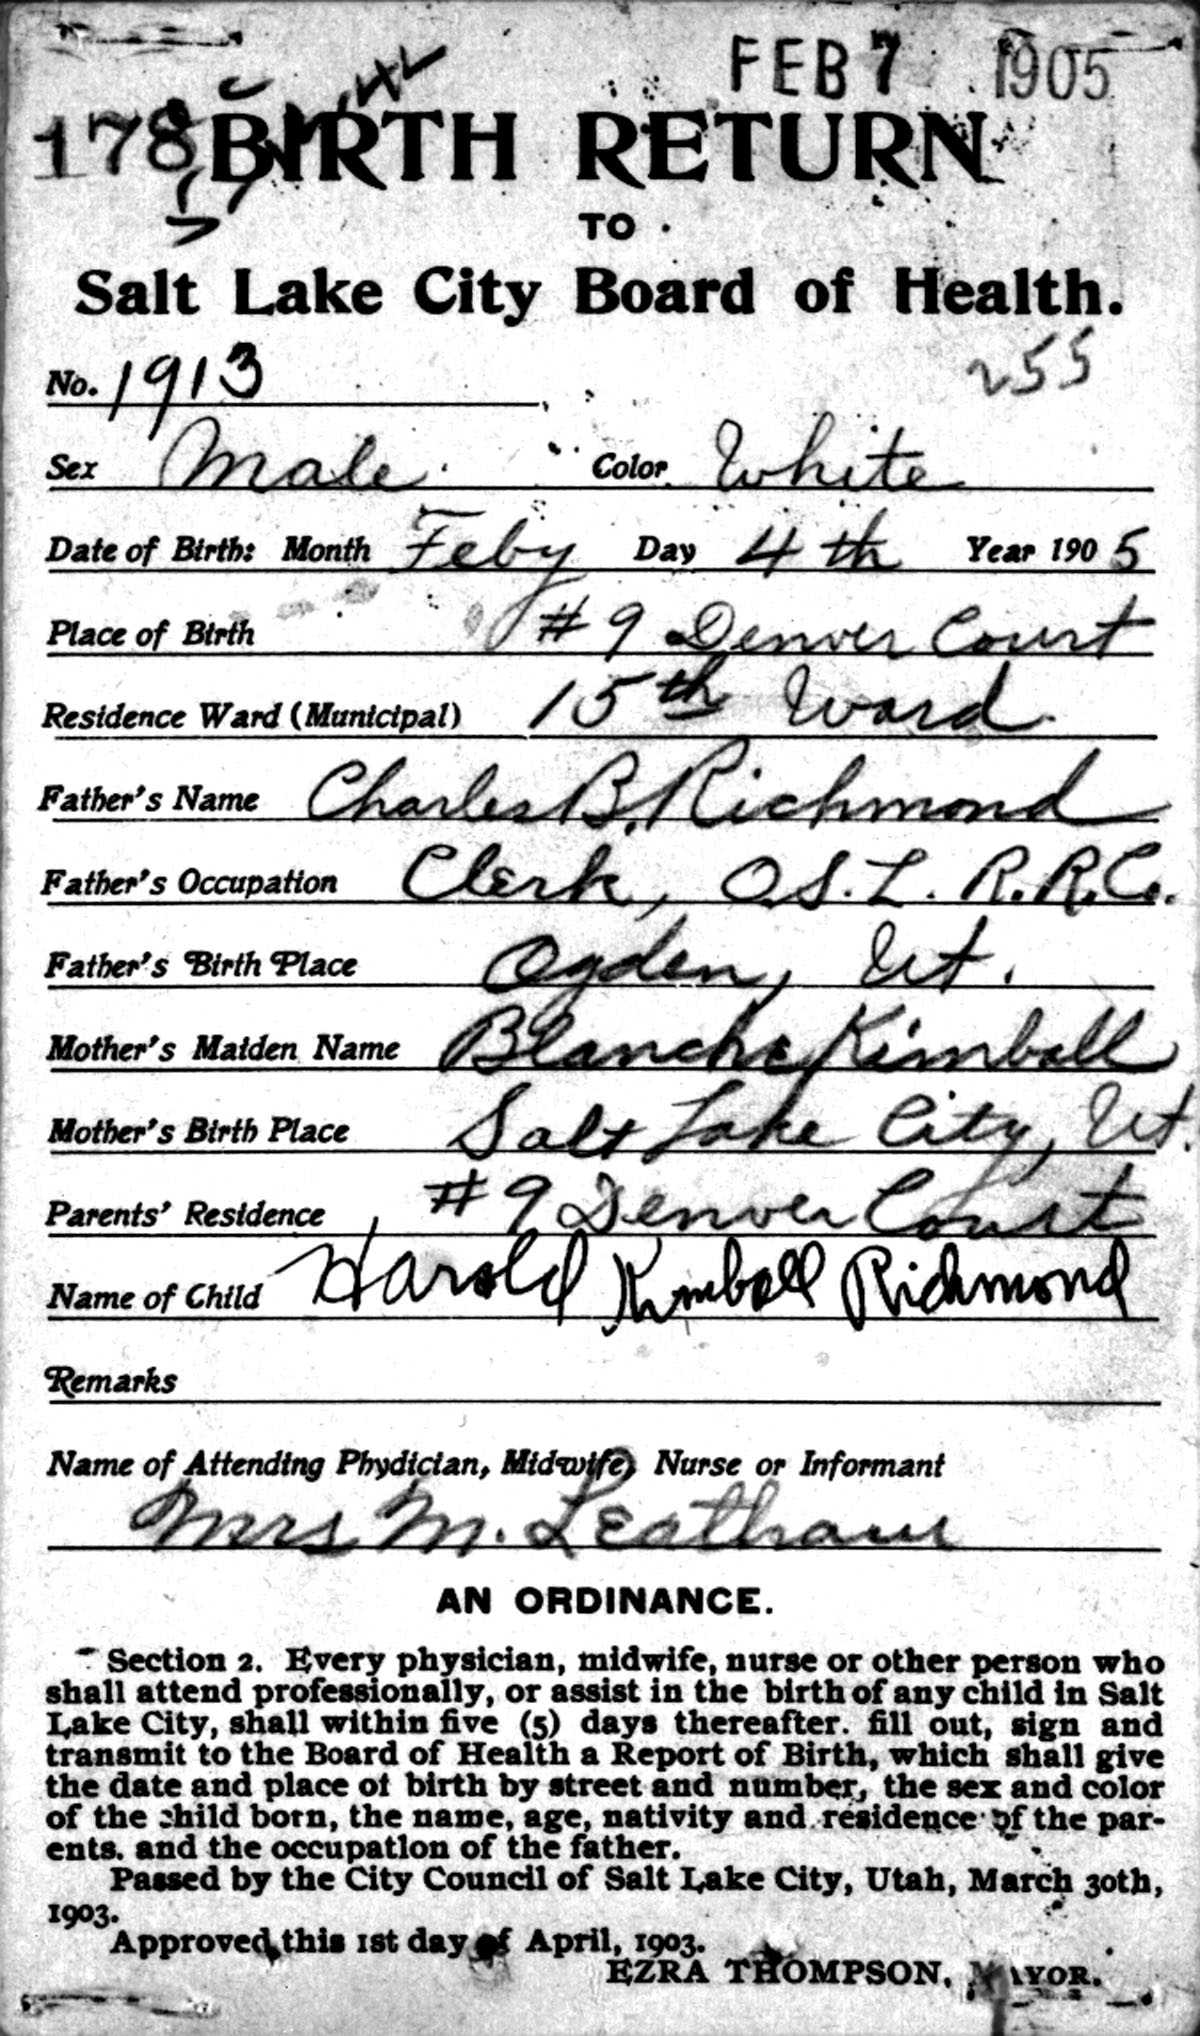 FEB 7 1905
178 BIRTH RETURN
TO
Salt Lake City Board of Health.
No. 1913
255
Sex Male Color White
Date of Birth: Month Feby Day 4th Year 1905
Place of Birth #9 Denver Court
Residence Ward (Municipal) 15th Ward
Father's Name Charles B. Richmond
Father's Occupation Clerk, O.S.L. R.R.Co.
Father's Birth Place Ogden, Ut.
Mother's Maiden Name Blanche Kimball
Mother's Birth Place Salt Lake City, Ut.
Parents' Residence #9 Denver Court
Name of Child Harold Kimball Richmond
Remarks
Name of Attending Phydician, Midwife, Nurse or Informant
Mrs M. Leatham
AN ORDINANCE.
Section 2. Every physician, midwife, nurse or other person who
shall attend professionally, or assist in the birth of any child in Salt
Lake City, shall within five (5) days thereafter. fill out, sign and
transmit to the Board of Health a Report of Birth, which shall give
the date and place of birth by street and number, the sex and color
of the child born, the name, age, nativity and residence of the par-
ents. and the occupation of the father.
Passed by the City Council of Salt Lake City, Utah, March 30th,
1903.
Approved this 1st day of April, 1903.
EZRA THOMPSON, MAYOR.